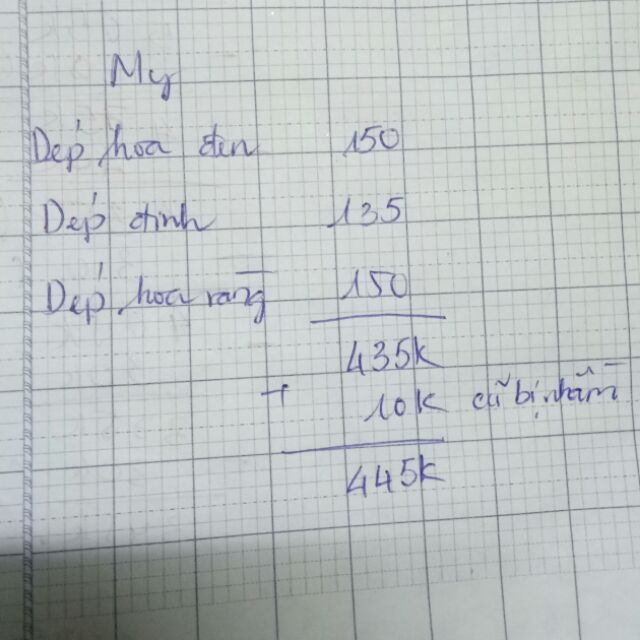 My
Dép hoa đen 150
Dép đinh 135
Dép hoa ran 150
435k
+ 10k cũ bị nhầm
445k